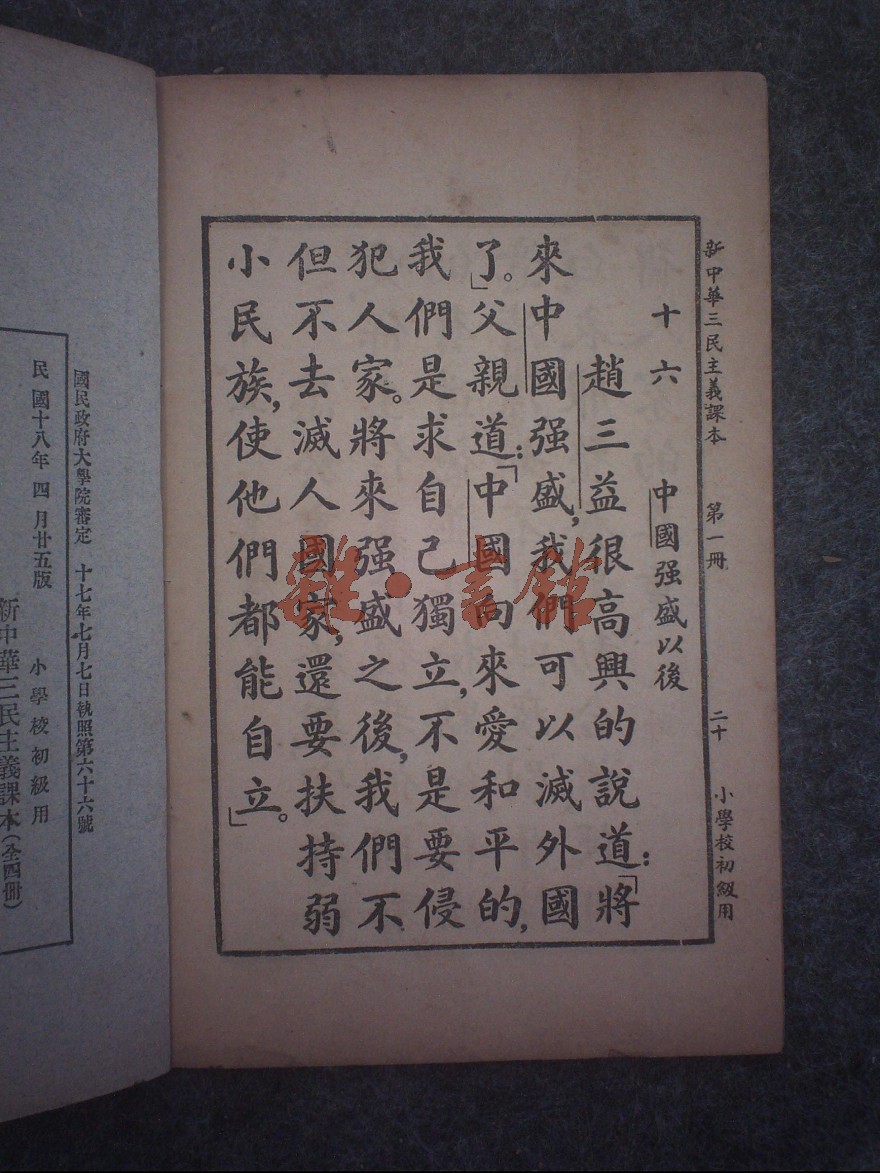 新中華三民主義課本 第一冊 二十 小學校初級用
十六 中國强盛以後
趙三益很高興的說道:「將
來中國强盛,我們可以滅外國
了。」父親道:「中國向來愛和平的,
我們是求自己獨立,不是要侵
犯人家。將來强盛之後,我們不
但不去滅人國家,還要扶持弱
小民族,使他們都能自立。」
雜·書館
國民政府大學院審定 十七年七月七日執照第六十六號
民國十八年四月廿五版 小學校初級用
新中華三民主義課本(全四冊)